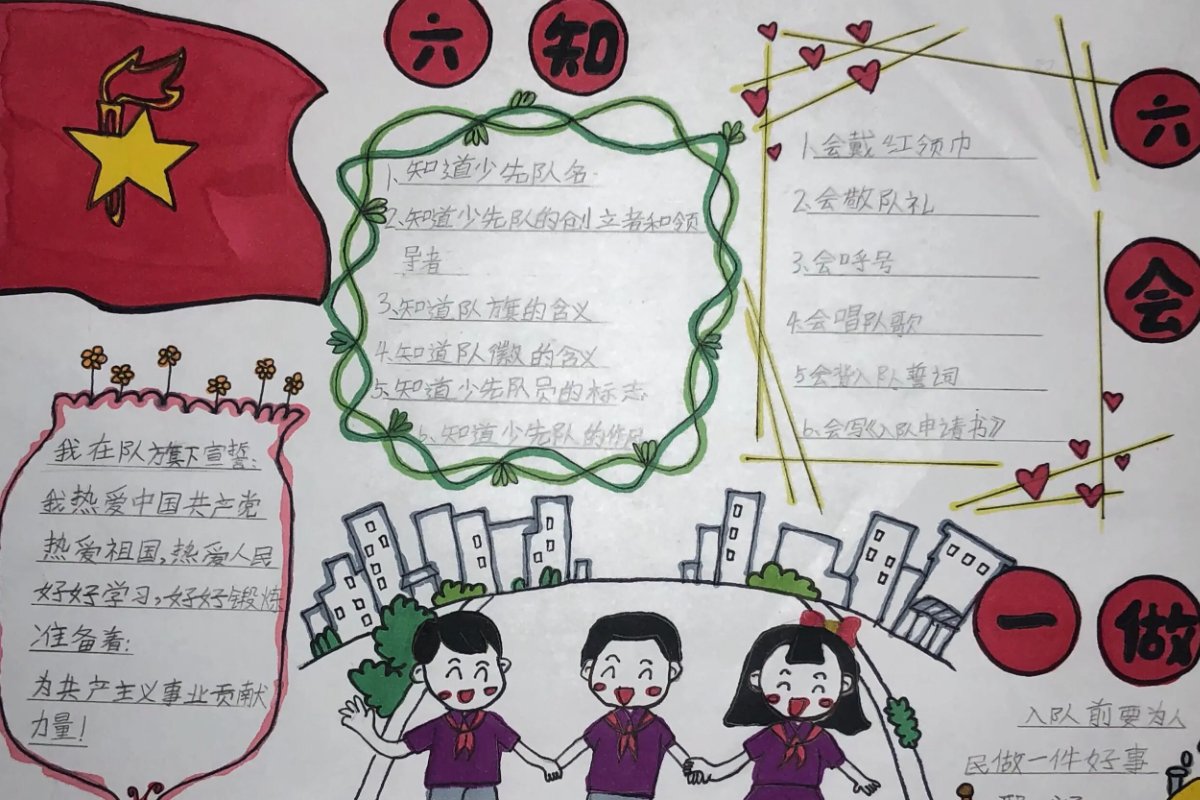 六知
1、知道少先队名
2、知道少先队的创立者和领
导者
3、知道队旗的含义
4、知道队徽的含义
5、知道少先队员的标志
6、知道少先队的作风
六会
1、会戴红领巾
2、会敬队礼
3、会呼号
4、会唱队歌
5会背入队誓词
6、会写《入队申请书》
我在队旗下宣誓:
我热爱中国共产党
热爱祖国,热爱人民
好好学习,好好锻炼
准备着:
为共产主义事业贡献
力量!
一做
入队前要为人
民做一件好事